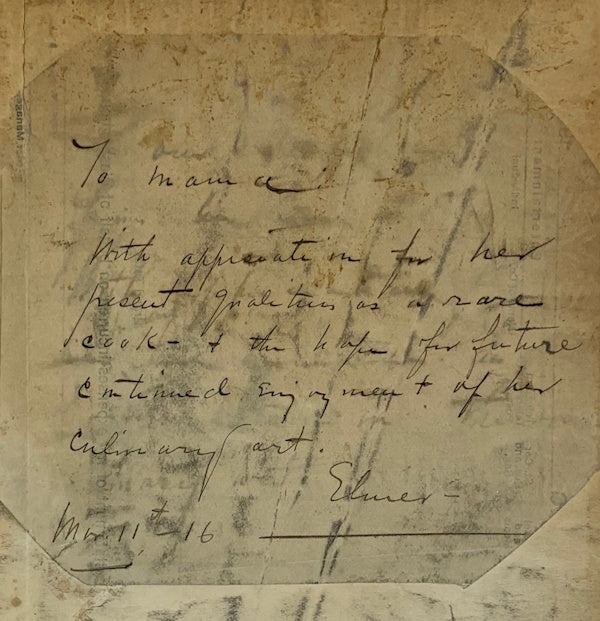 To Mama
With appreciation for her
present qualities as a rare
cook - & the hope for future
continued enjoyment of her
culinary art.
Elmer -
Mar 11th - 16